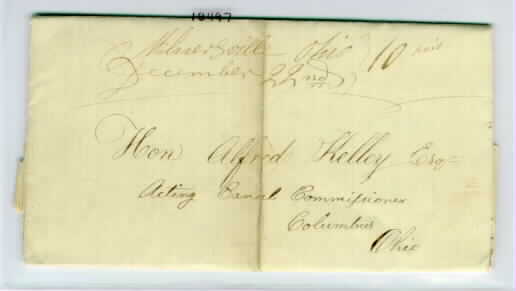 18497
Milnersville Ohio } 10
December 22nd
Hon Alfred Kelley Esqr
Acting Canal Commissioner
Columbus
Ohio